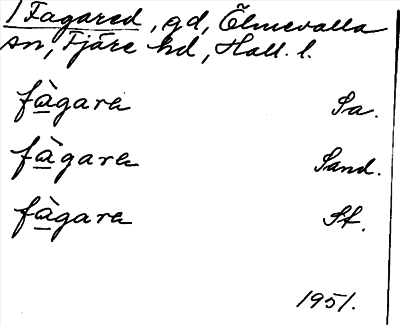 1 Fagared, gd, Ölmevalla
sn, Fjäre hd, Hall. l.
fàgarɐ Sa.
fàgarɐ Sand.
fàgarɐ Sf.
1951.